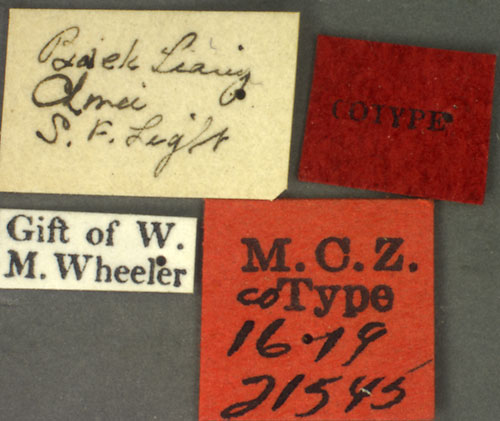 Paiek Liang
Amoi
S. F. Light
COTYPE
Gift of W.
M. Wheeler
M.C.Z.
coType
16-19
21545